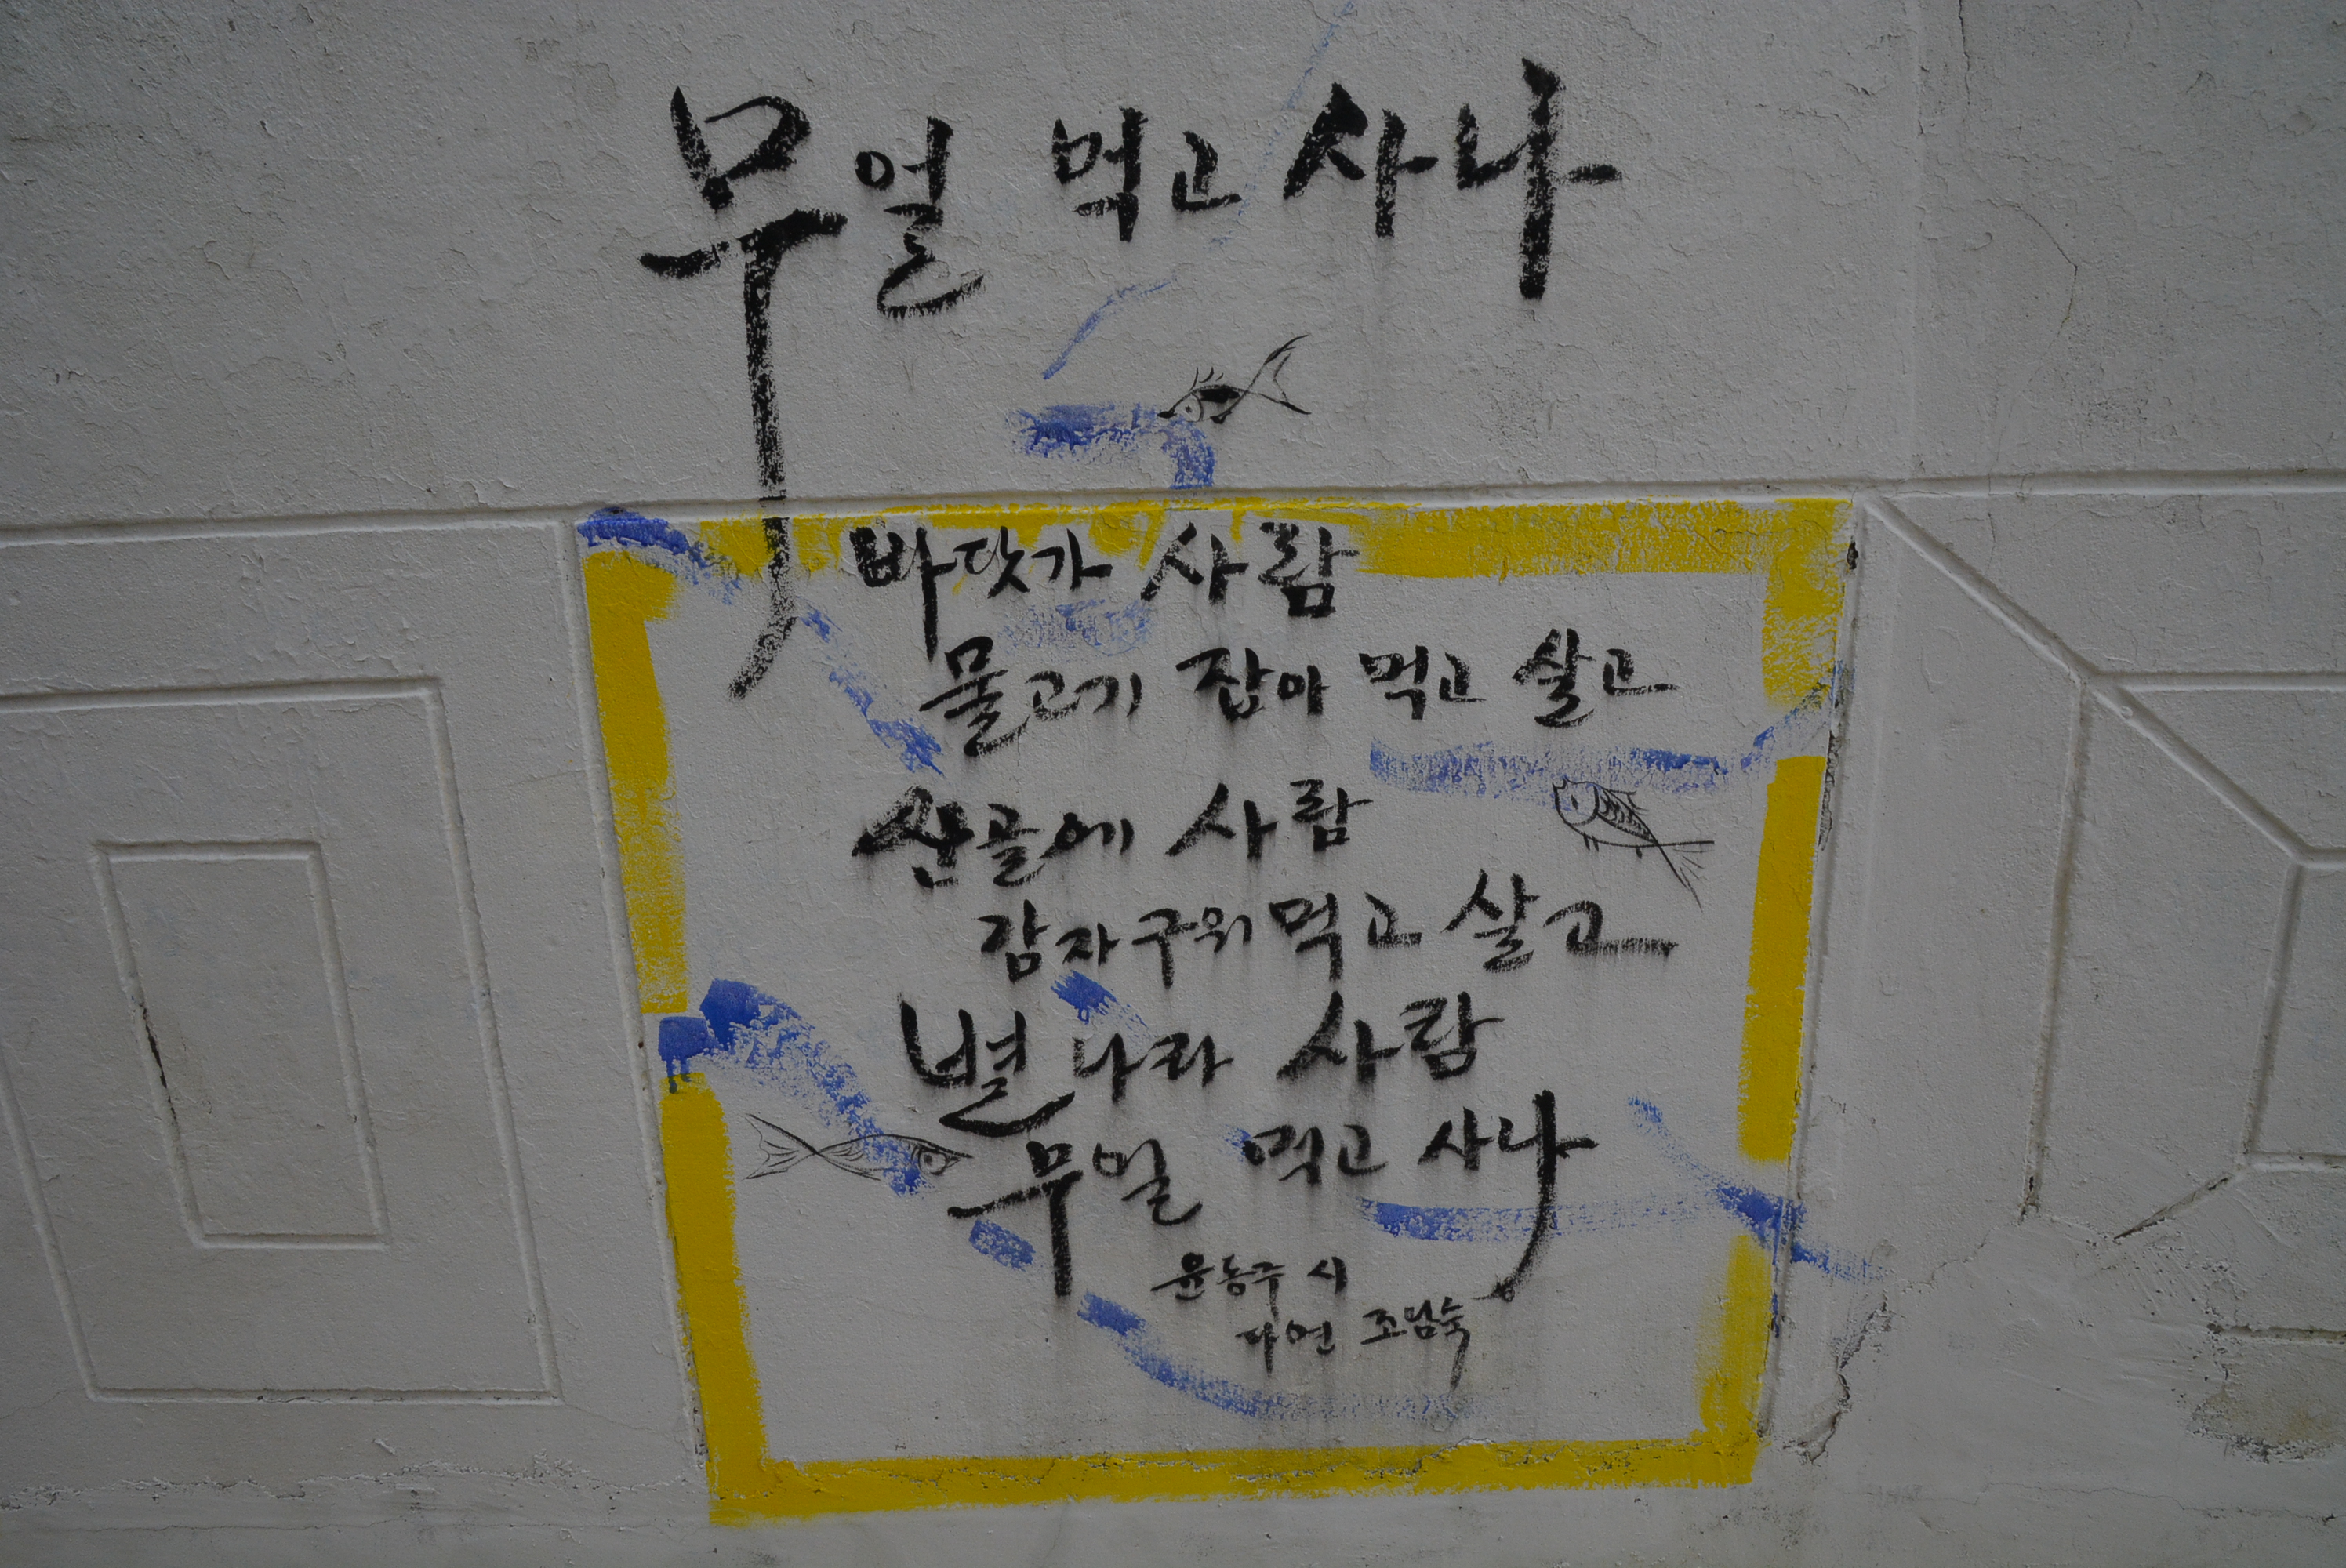 무얼 먹고 사나
바닷가 사람
물고기 잡아 먹고 살고
산골에 사람
감자구워 먹고 살고
별나라 사람
무얼 먹고 사나
윤동주 시
다연 조남숙